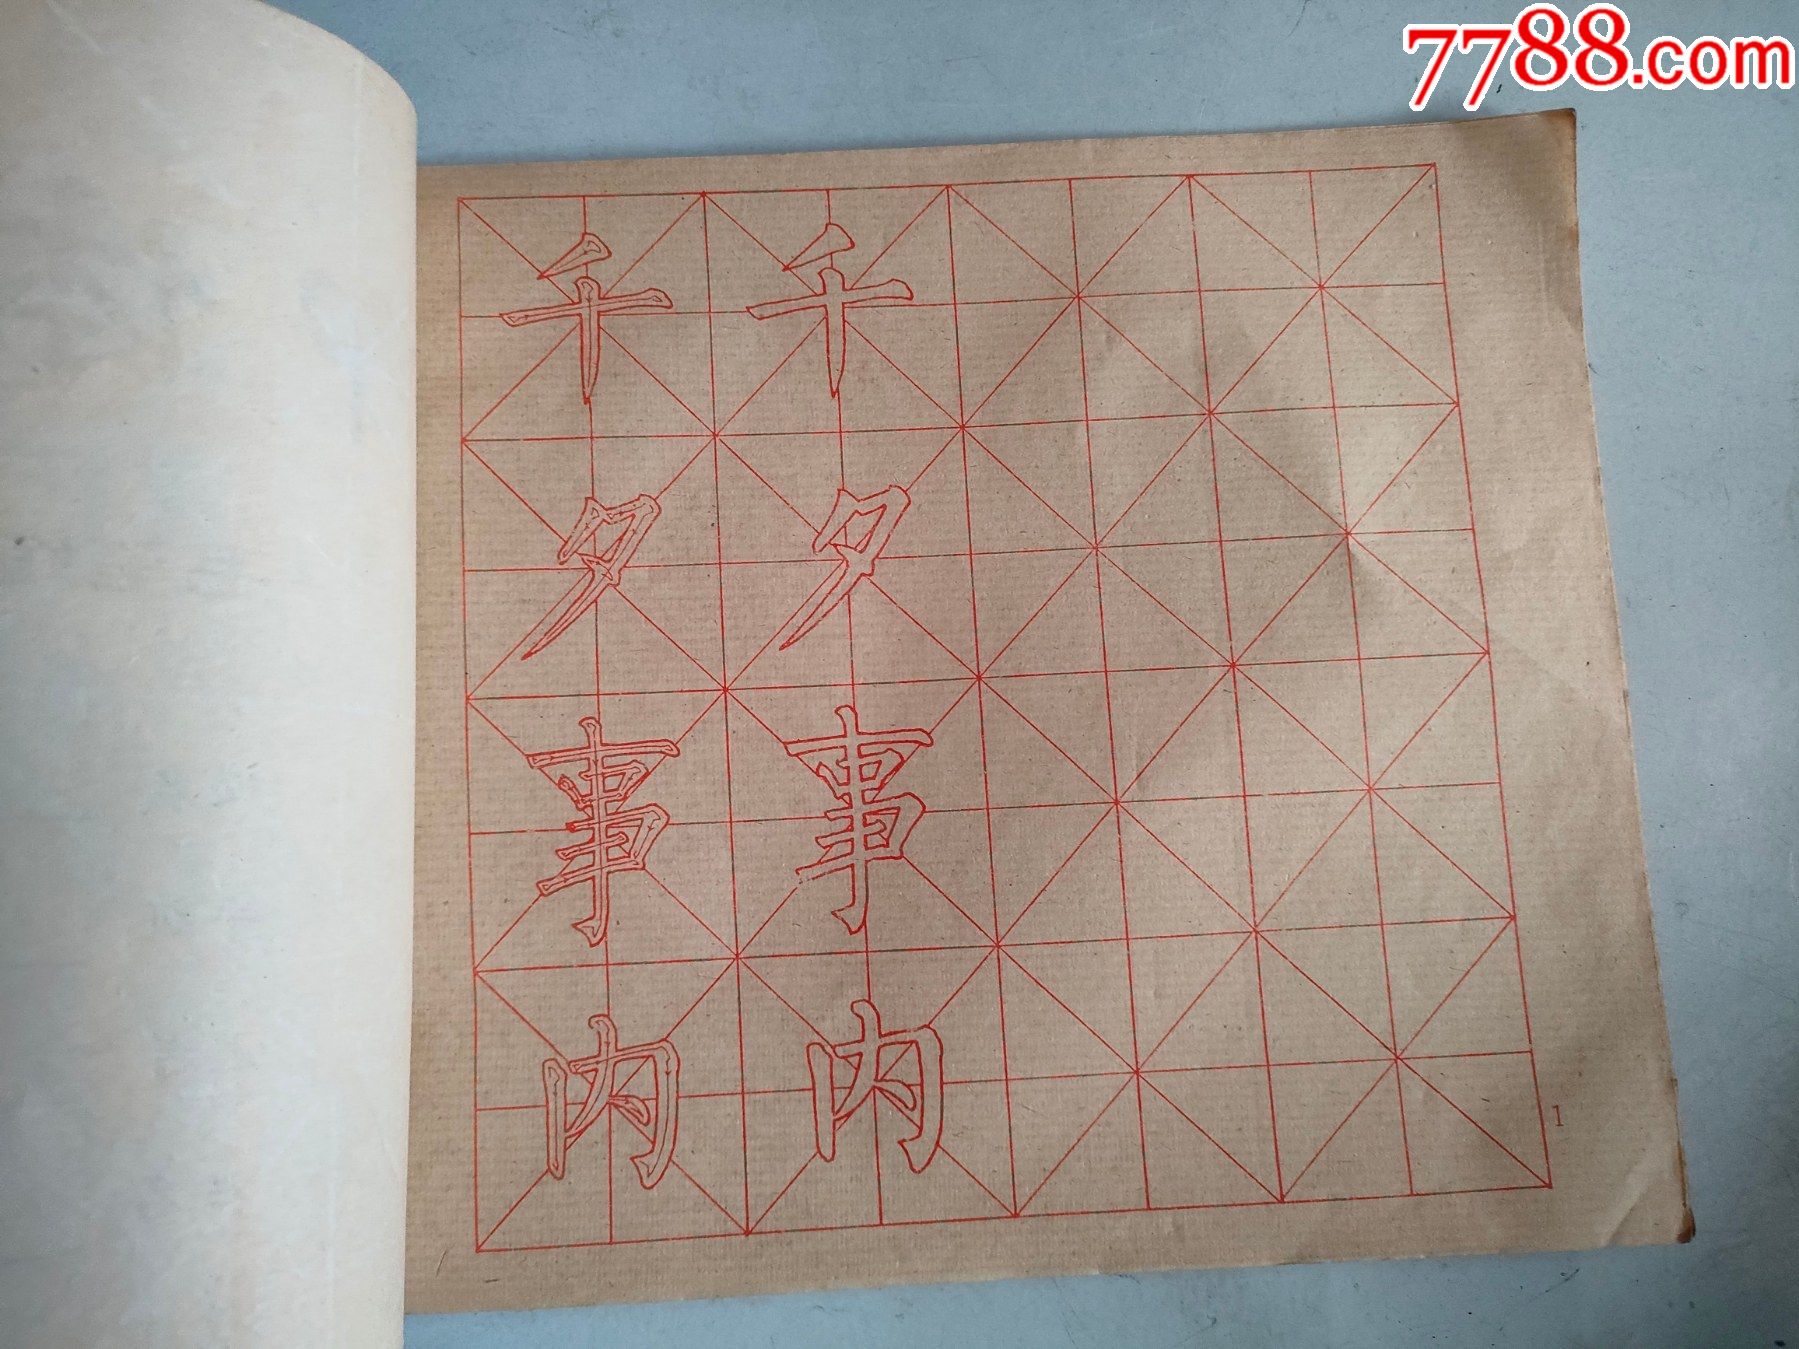 7788.com
千夕事内
千夕事内
1